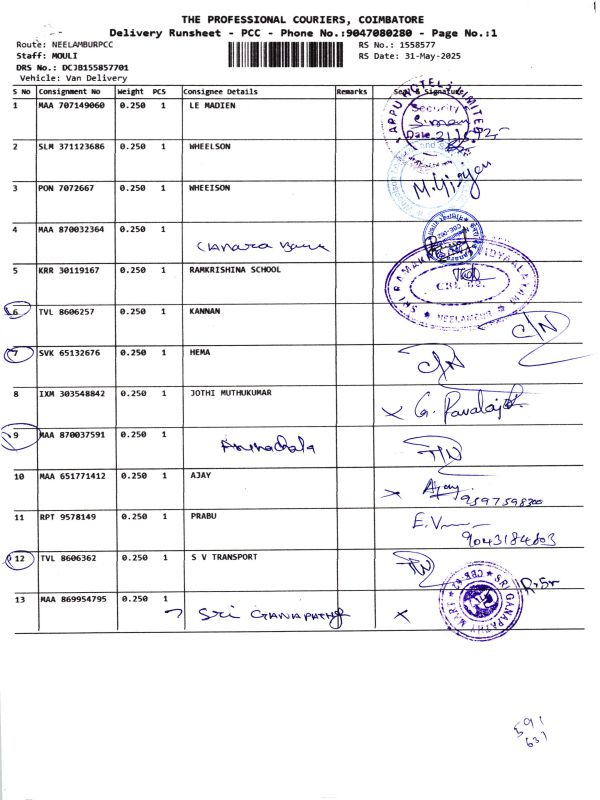 THE PROFESSIONAL COURIERS, COIMBATORE
Delivery Runsheet - PCC - Phone No.:9047080280 - Page No.:1
Route: NEELAMBURPCC RS No.: 1558577
Staff: MOULI RS Date: 31-May-2025
DRS No.: DCJB155857701
Vehicle: Van Delivery
S No Consignment No Weight PCS Consignee Details Remarks Seal & Signature
1 MAA 707149060 0.250 1 LE MADIEN
APPU HOTELS LIMITED
Security
Date
2 SLM 371123686 0.250 1 WHEELSON
3 PON 7072667 0.250 1 WHEEISON
4 MAA 870032364 0.250 1
Canara Bank
5 KRR 30119167 0.250 1 RAMKRISHINA SCHOOL
SRI RAMAKRISHNA VIDYAALAYAM
NEELAMBUR
6 TVL 8606257 0.250 1 KANNAN C/N
7 SVK 65132676 0.250 1 HEMA
8 IXM 303548842 0.250 1 JOTHI MUTHUKUMAR
9 MAA 870037591 0.250 1
Arunachala
10 MAA 651771412 0.250 1 AJAY Ajay
9597598300
11 RPT 9578149 0.250 1 PRABU
9043184603
12 TVL 8606362 0.250 1 S V TRANSPORT
13 MAA 869954795 0.250 1
Sri GANAPATHY
SRI GANAPATHY MART
591
631